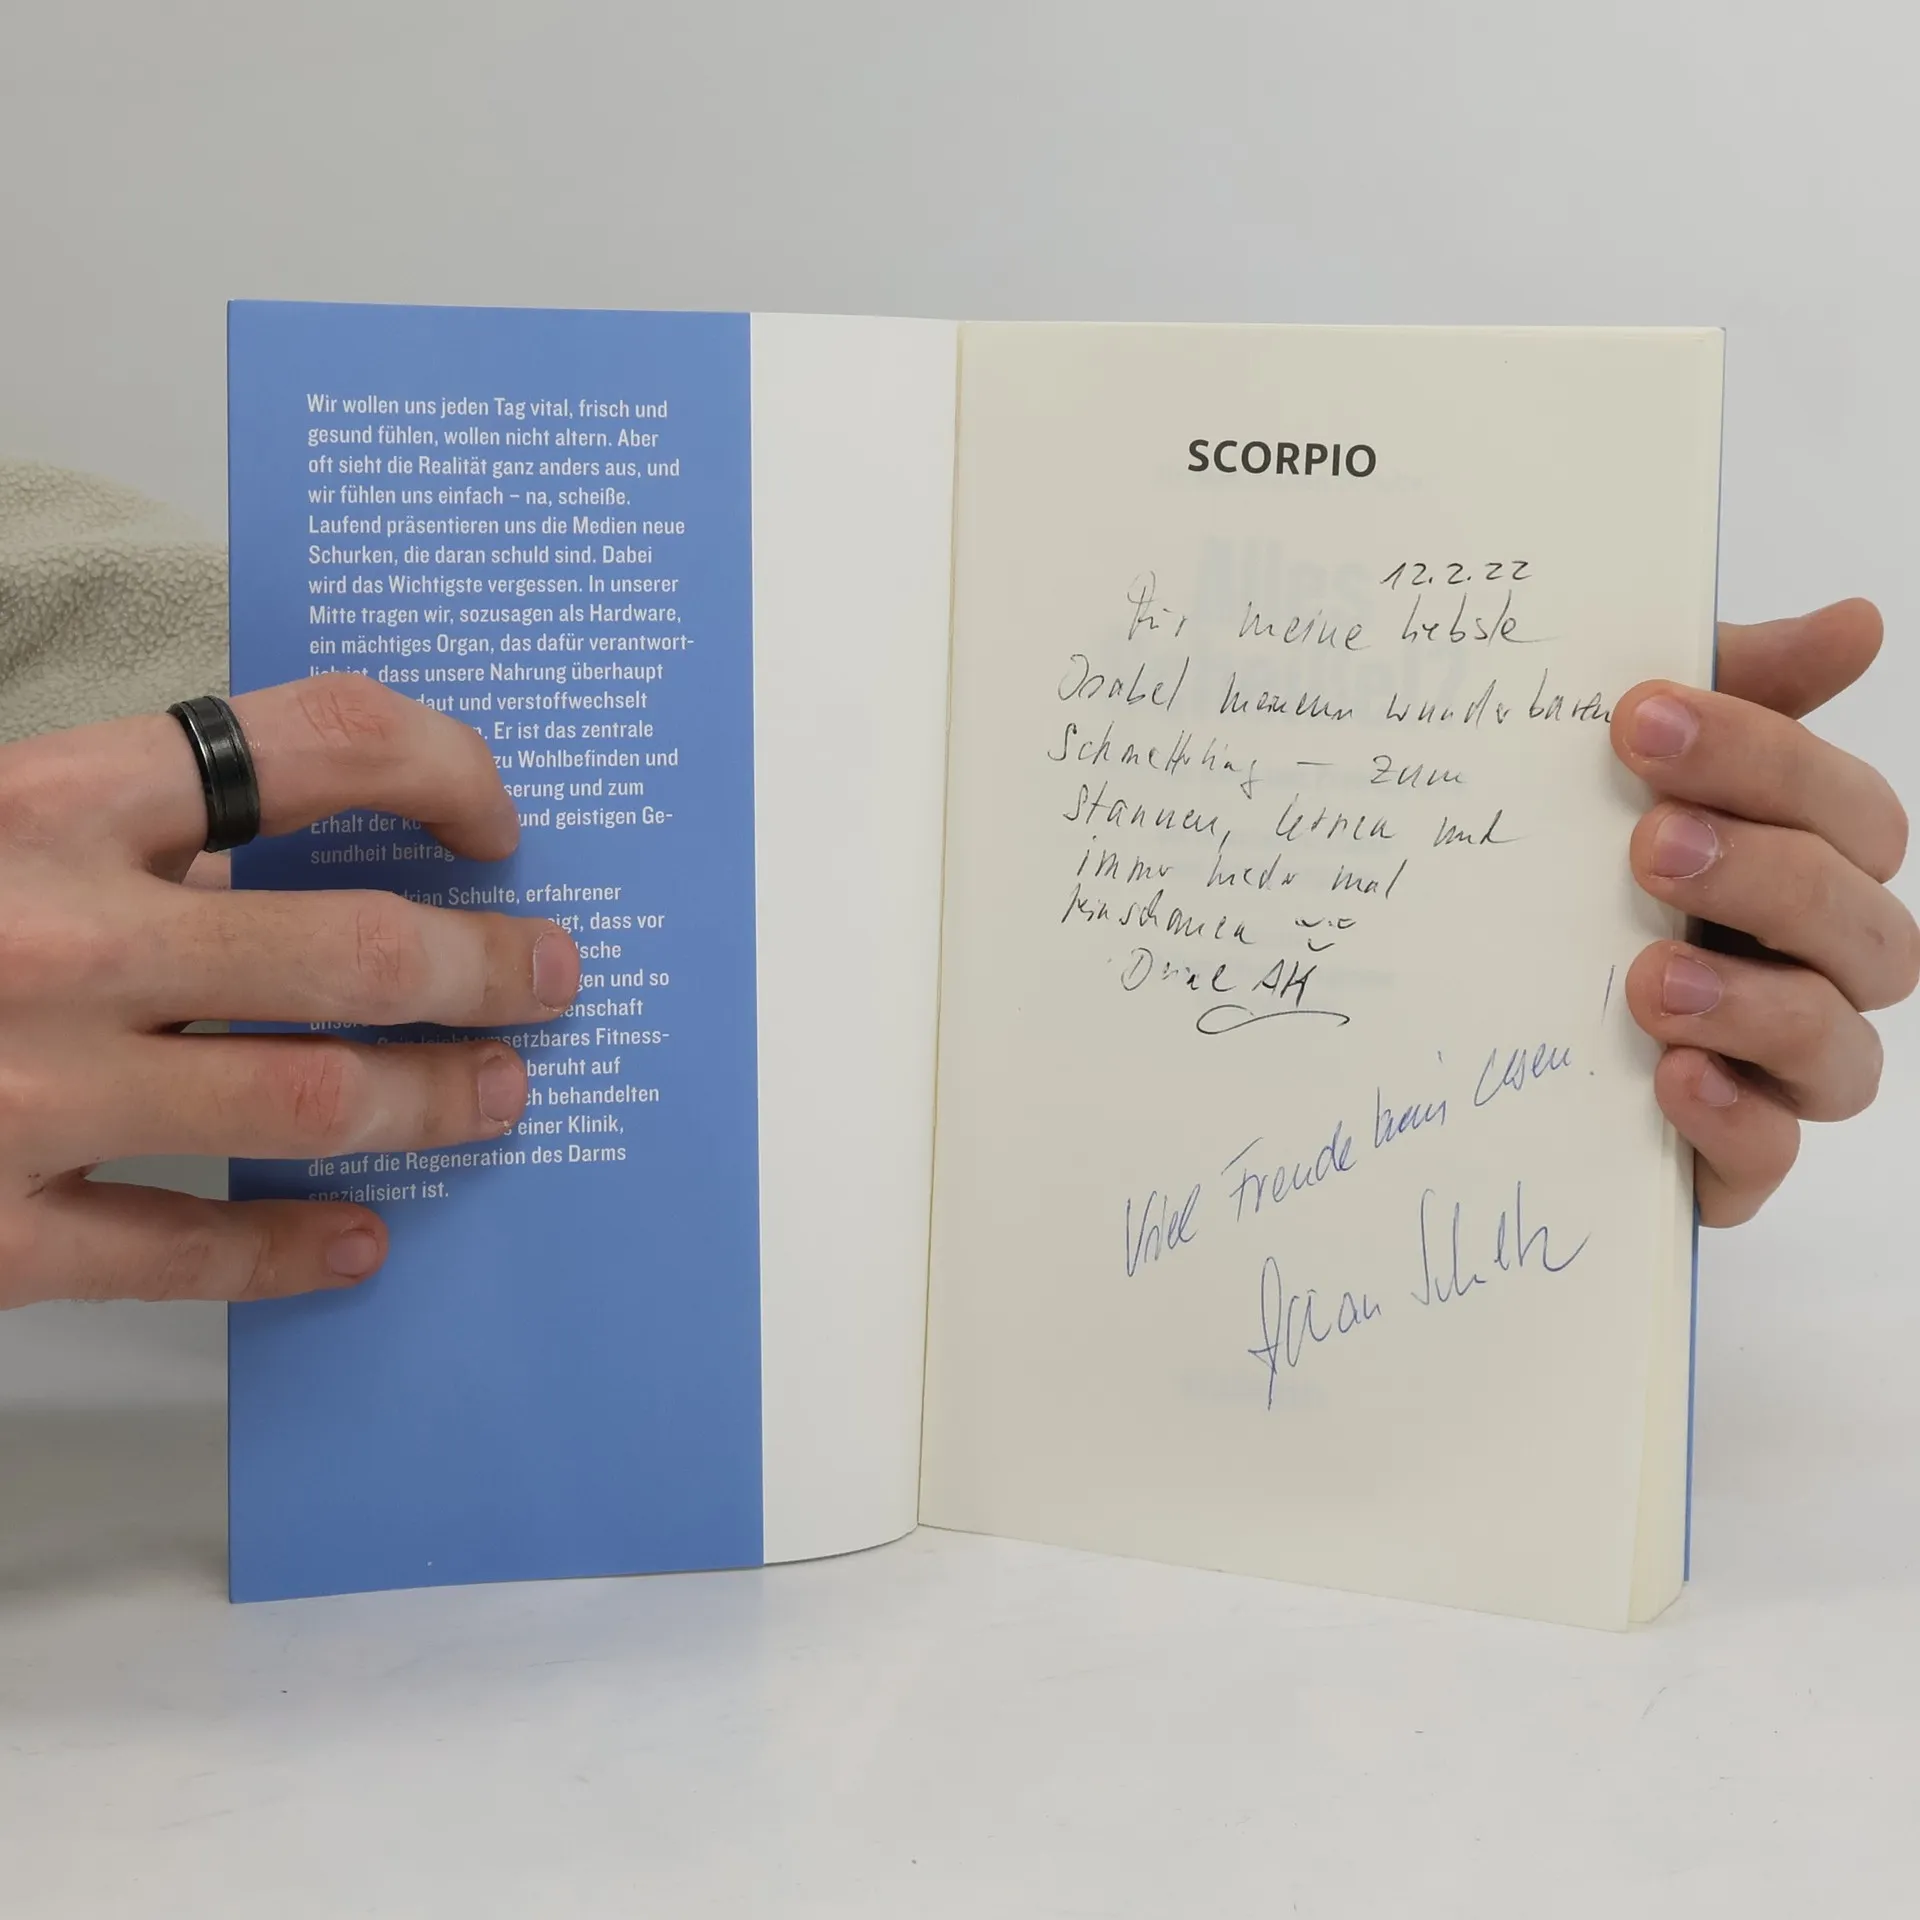 Wir wollen uns jeden Tag vital, frisch und
gesund fühlen, wollen nicht altern. Aber
oft sieht die Realität ganz anders aus, und
wir fühlen uns einfach – na, scheiße.
Laufend präsentieren uns die Medien neue
Schurken, die daran schuld sind. Dabei
wird das Wichtigste vergessen. In unserer
Mitte tragen wir, sozusagen als Hardware,
ein mächtiges Organ, das dafür verantwort-
lich ist, dass unsere Nahrung überhaupt
daut und verstoffwechselt
. Er ist das zentrale
zu Wohlbefinden und
serung und zum
Erhalt der kö und geistigen Ge-
sundheit beiträg
drian Schulte, erfahrener
eigt, dass vor
lsche
gen und so
enschaft
umsetzbares Fitness-
beruht auf
ch behandelten
s einer Klinik,
die auf die Regeneration des Darms
spezialisiert ist.
SCORPIO
12.2.22
Für meine liebste
Isabel meinem wunderbaren
Schmetterling — zum
staunen, lernen und
immer wieder mal
reinschauen
Deine AK
Viel Freude beim Lesen!
Adrian Schulte